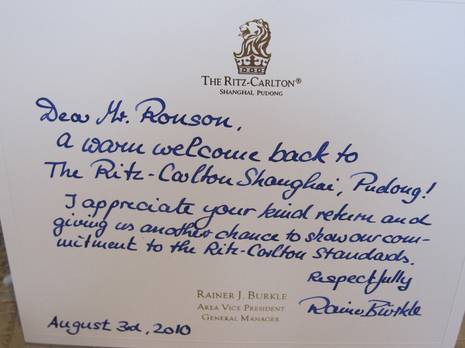 THE RITZ-CARLTON®
SHANGHAI PUDONG
Dear Mr. Ronson,
a warm welcome back to
The Ritz-Carlton Shanghai, Pudong!
I appreciate your kind return and
giving us another chance to show our com-
mitment to the Ritz-Carlton Standards.
Respectfully
RAINER J. BURKLE
AREA VICE PRESIDENT
GENERAL MANAGER
Rainer Bürkle
August 3rd, 2010